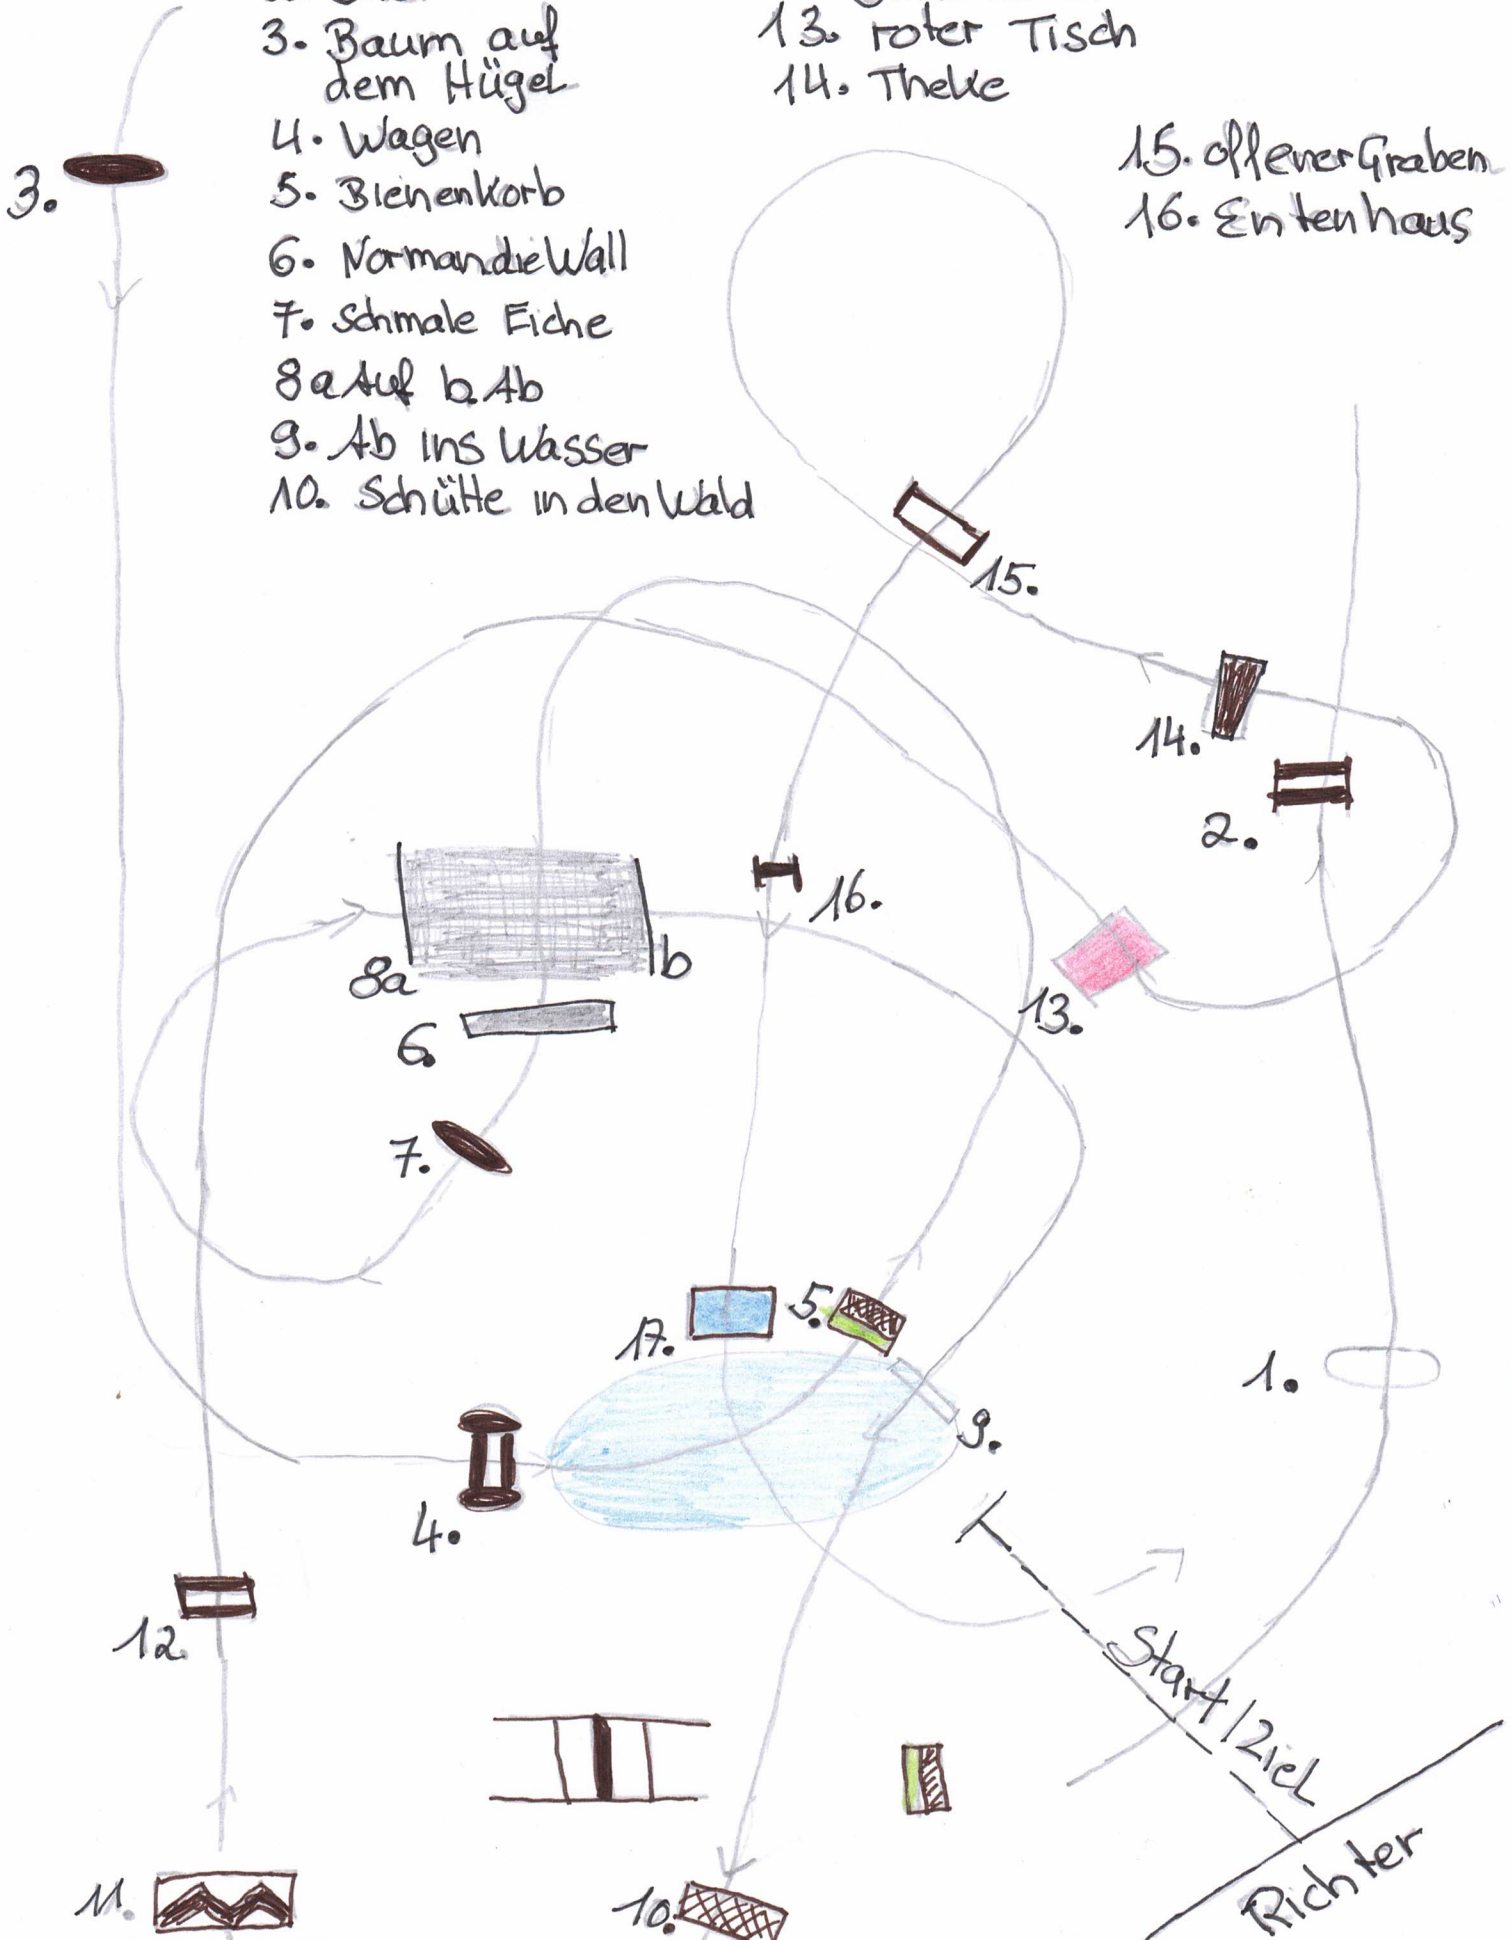 3. Baum auf
dem Hügel
4. Wagen
5. Bienenkorb
6. NormandieWall
7. Schmale Eiche
8a Auf b. Ab
9. Ab ins Wasser
10. Schütte in den Wald
13. roter Tisch
14. Theke
15. offener Graben
16. Entenhaus
3.
15.
14.
2.
16.
8a
b
13.
6.
7.
5.
17.
1.
9.
4.
12.
Start/Ziel
11.
10.
Richter